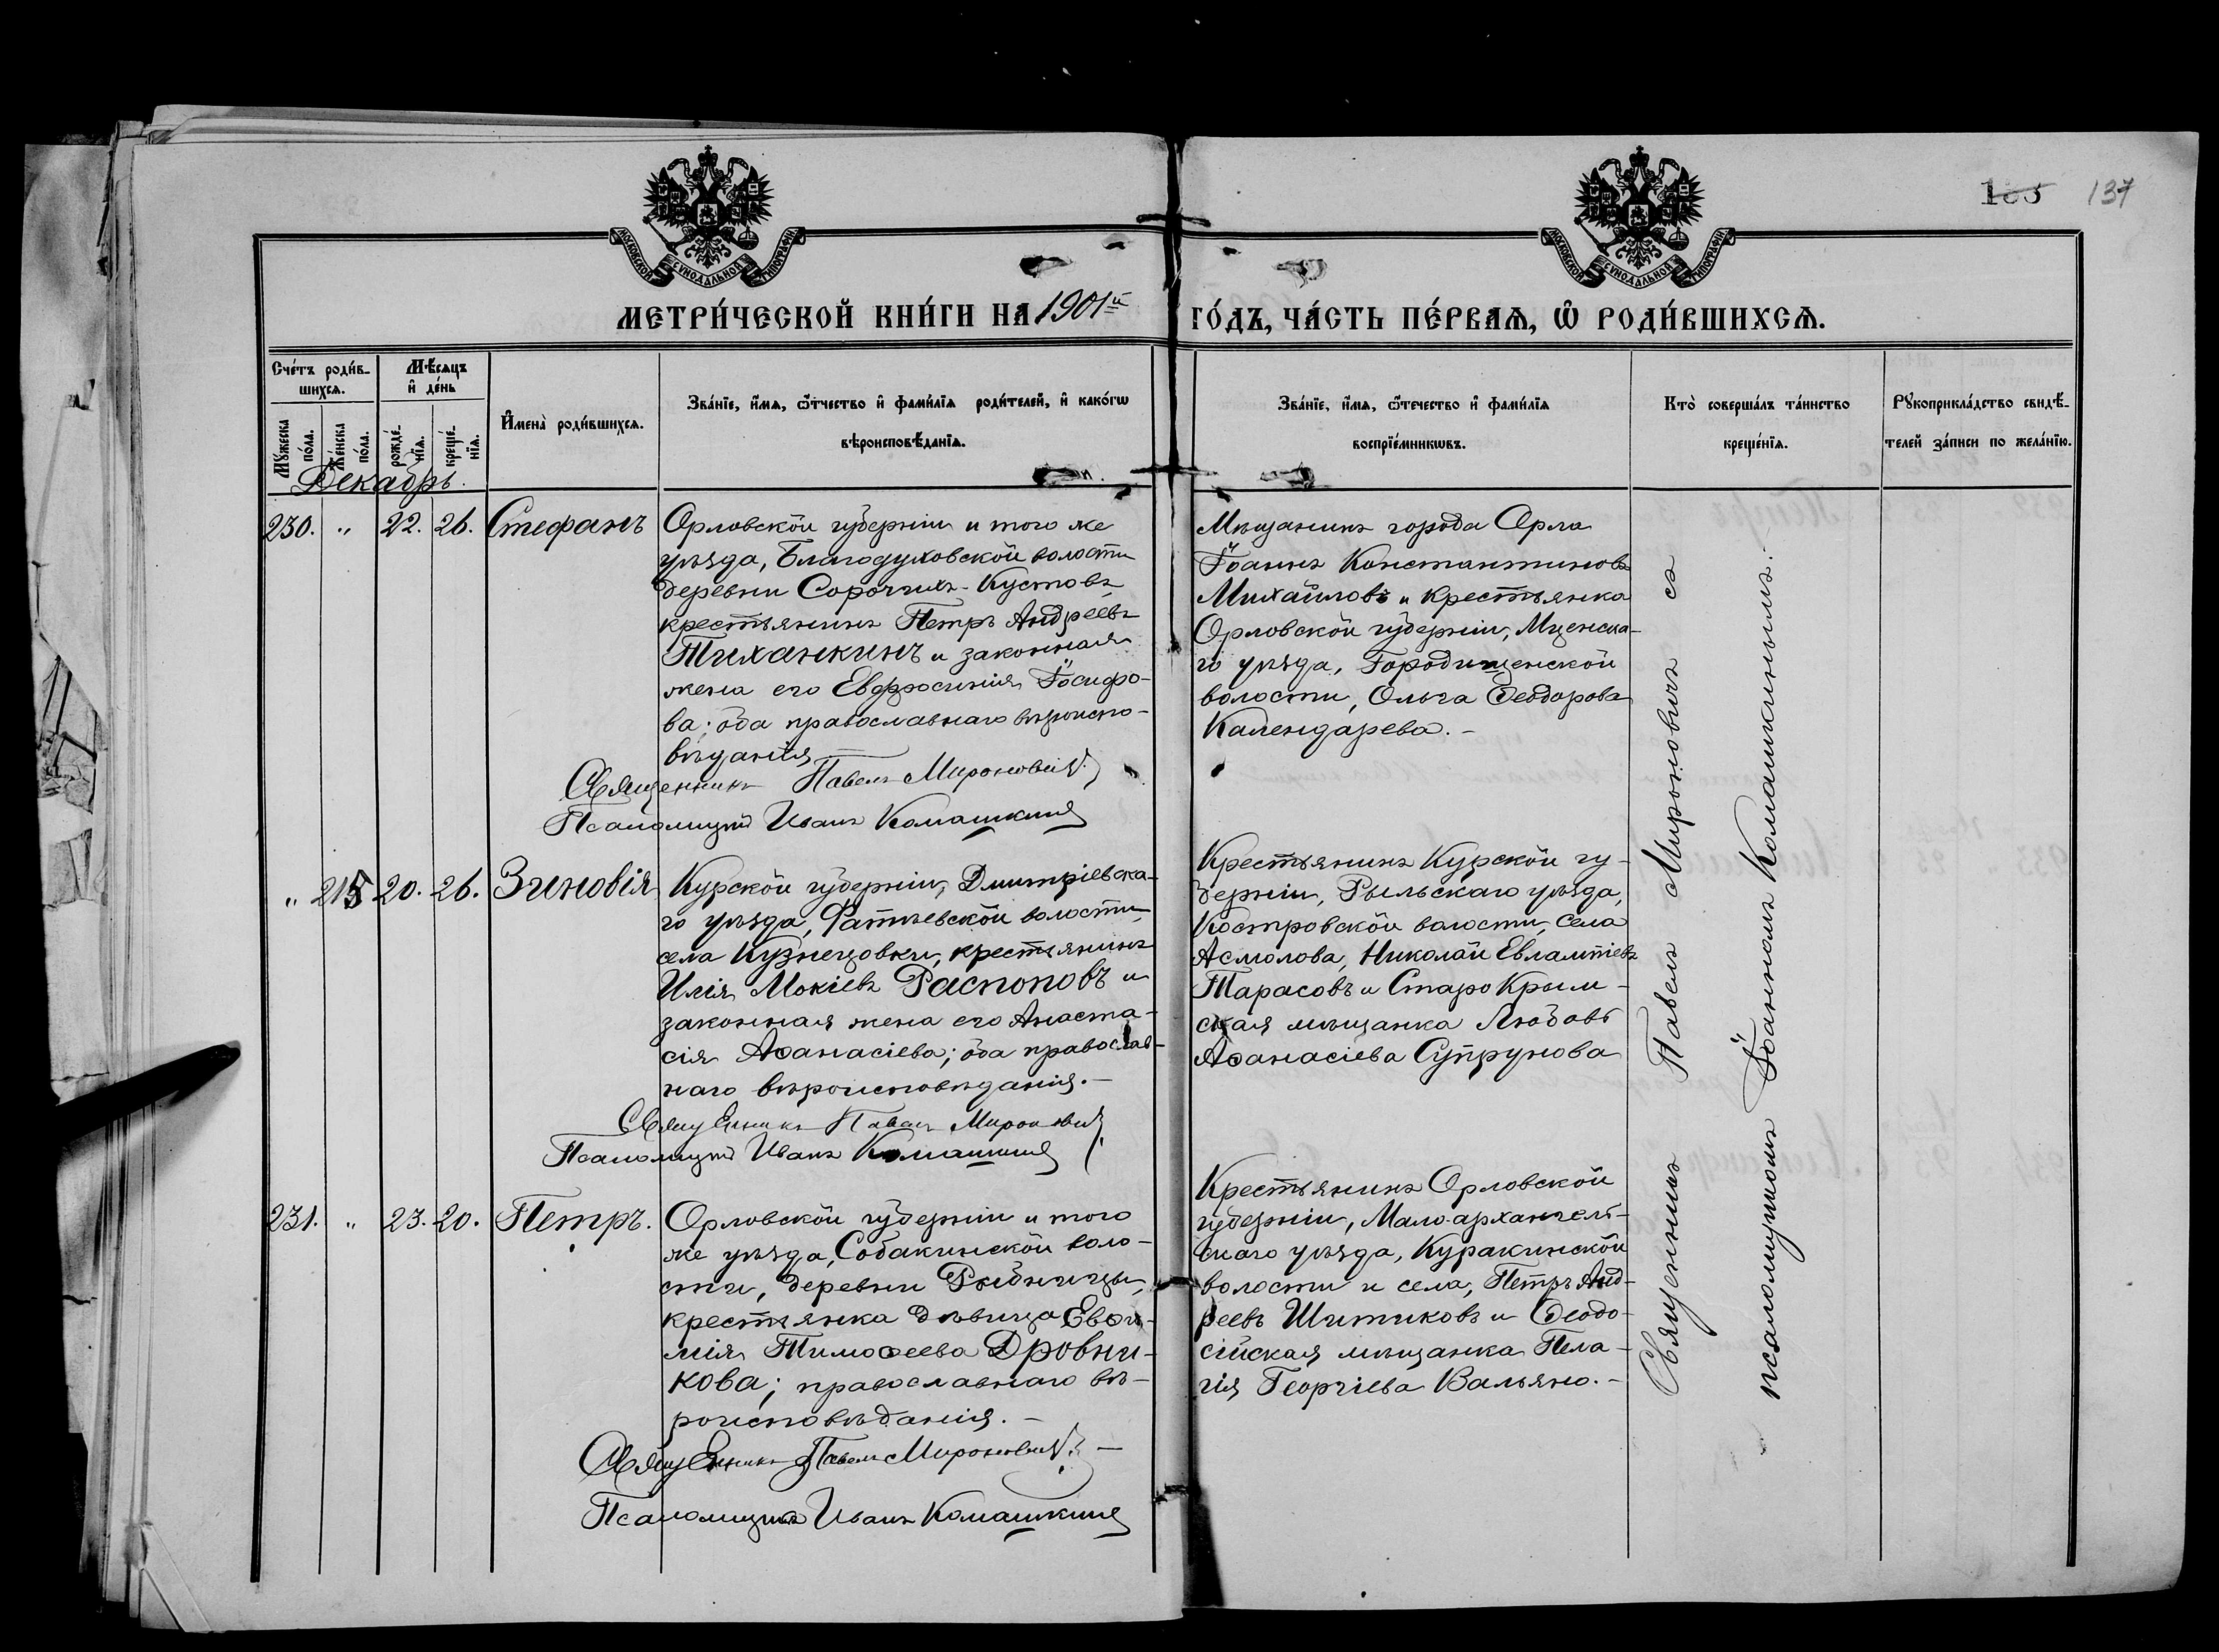 137
МОСКОВСКОЙ СѴНОДАЛЬНОЙ ТИПОГРАФІИ
МОСКОВСКОЙ СѴНОДАЛЬНОЙ ТИПОГРАФІИ
МЕТРИ́ЧЕСКОЙ КНИ́ГИ НА 1901й ГО́ДЪ, ЧА́СТЬ ПЕ́РВАѦ, Ѡ РОДИ́ВШИХСѦ.
Сче́тъ роди́в-
шихсѧ.
Мꙋ́жеска по́ла.
Же́нска по́ла.
Мѣ́сѧцъ
и де́нь
рожде́-
нїѧ.
креще́-
нїѧ.
Имена̀ роди́вшихсѧ.
Зва́нїе, и́мѧ, ѻ́тчество и фами́лїѧ роди́телей, и како́гѡ
вѣроисповѣ́данїѧ.
Зва́нїе, и́мѧ, ѻ́течество и фами́лїѧ
воспрїе́мникѡвъ.
Кто̀ соверша́лъ та́инство
креще́нїѧ.
Рꙋкоприкла́дство свидѣ́-
телей за́писи по жела́нїю.
Декабрь.
230. „ 22. 26. Стефанъ
Орловской губерніи и того же
уѣзда, Благодуховской волости
деревни Сорочихъ-Кустовъ,
крестьянинъ Петръ Андреевъ
Тиханкинъ и законная
жена его Евфросинія Іосифо-
ва; оба православнаго вѣроиспо-
вѣданія
Священникъ Павелъ Мироновичъ
Псаломщикъ Иванъ Комашкинъ
Мѣщанинъ города Орла
Іоаннъ Константиновъ
Михайловъ и крестьянка
Орловской губерніи, Мценска-
го уѣзда, Городищенской
волости, Ольга Ѳеодорова
Календарева.-
„ 215 20. 26. Зиновія
Курской губерніи, Дмитріевска-
го уѣзда, Фатѣевской волости,
села Кузнецовки, крестьянинъ
Илія Мокіевъ Распоповъ и
законная жена его Анаста-
сія Аѳанасіева; оба православ-
наго вѣроисповѣданія.-
Священникъ Павелъ Мироновичъ
Псаломщикъ Иванъ Комашкинъ
Крестьянинъ Курской гу-
берніи, Рыльскаго уѣзда,
Костровской волости, села
Асмолова, Николай Евлампіевъ
Тарасовъ и Старо Крым-
ская мѣщанка Любовь
Аѳанасіева Супрунова
231. „ 23. 20. Петръ.
Орловской губерніи и того
же уѣзда, Собакинской воло-
сти, деревни Рыбницы,
крестьянка дѣвица Евѳи-
мія Тимоѳеева Дровни-
кова; православнаго вѣ-
роисповѣданія.-
Священникъ Павелъ Мироновичъ -
Псаломщикъ Иванъ Комашкинъ
Крестьянинъ Орловской
губерніи, Мало-архангель-
скаго уѣзда, Куракинской
волости и села, Петръ Анд-
реевъ Шитиковъ и Ѳеодо-
сійская мѣщанка Пела-
гія Георгіева Вальяно.-
Священникъ Павелъ Мироновичъ съ
псаломщикомъ Іоанномъ Комашкинымъ.-